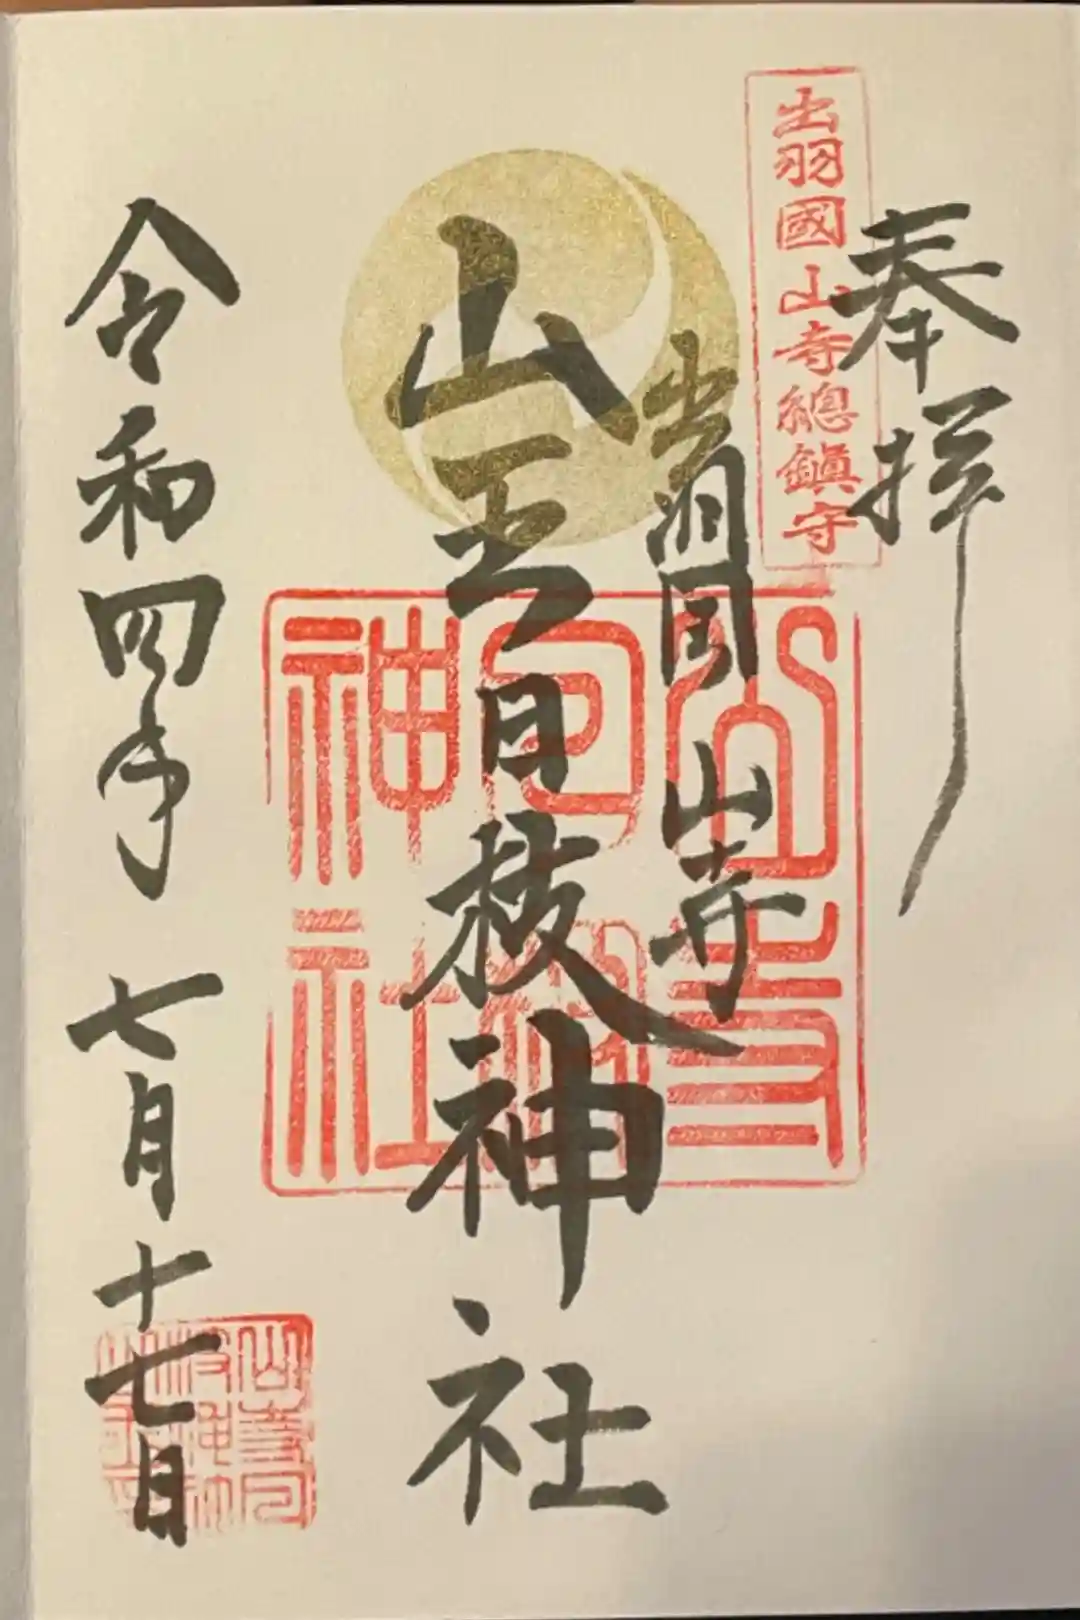 奉拝
出羽國山寺總鎮守
出羽国山寺
山王日枝神社
山寺日枝神社
令和四年七月十七日